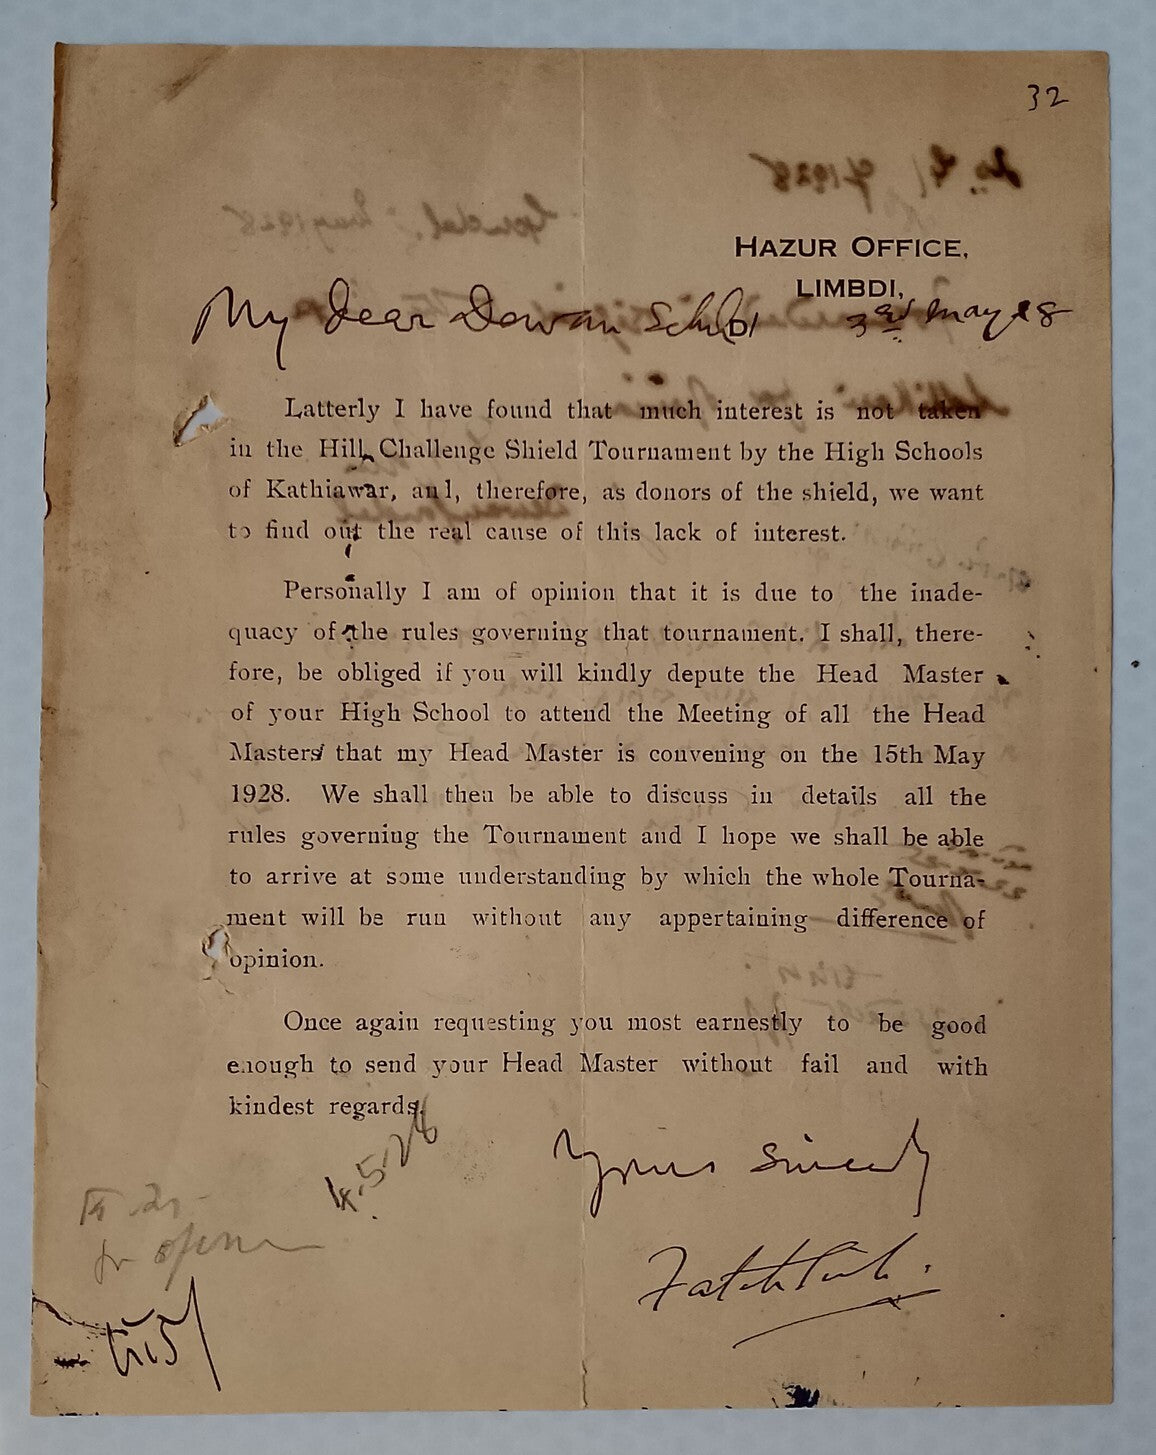 32
HAZUR OFFICE,
LIMBDI,
My dear Dewan Sahib 3rd May 28
Latterly I have found that much interest is not taken
in the Hill Challenge Shield Tournament by the High Schools
of Kathiawar, and, therefore, as donors of the shield, we want
to find out the real cause of this lack of interest.
Personally I am of opinion that it is due to the inade-
quacy of the rules governing that tournament. I shall, there-
fore, be obliged if you will kindly depute the Head Master
of your High School to attend the Meeting of all the Head
Masters that my Head Master is convening on the 15th May
1928. We shall then be able to discuss in details all the
rules governing the Tournament and I hope we shall be able
to arrive at some understanding by which the whole Tourna-
ment will be run without any appertaining difference of
opinion.
Once again requesting you most earnestly to be good
enough to send your Head Master without fail and with
kindest regards.
4.5.28
Yours Sincerely